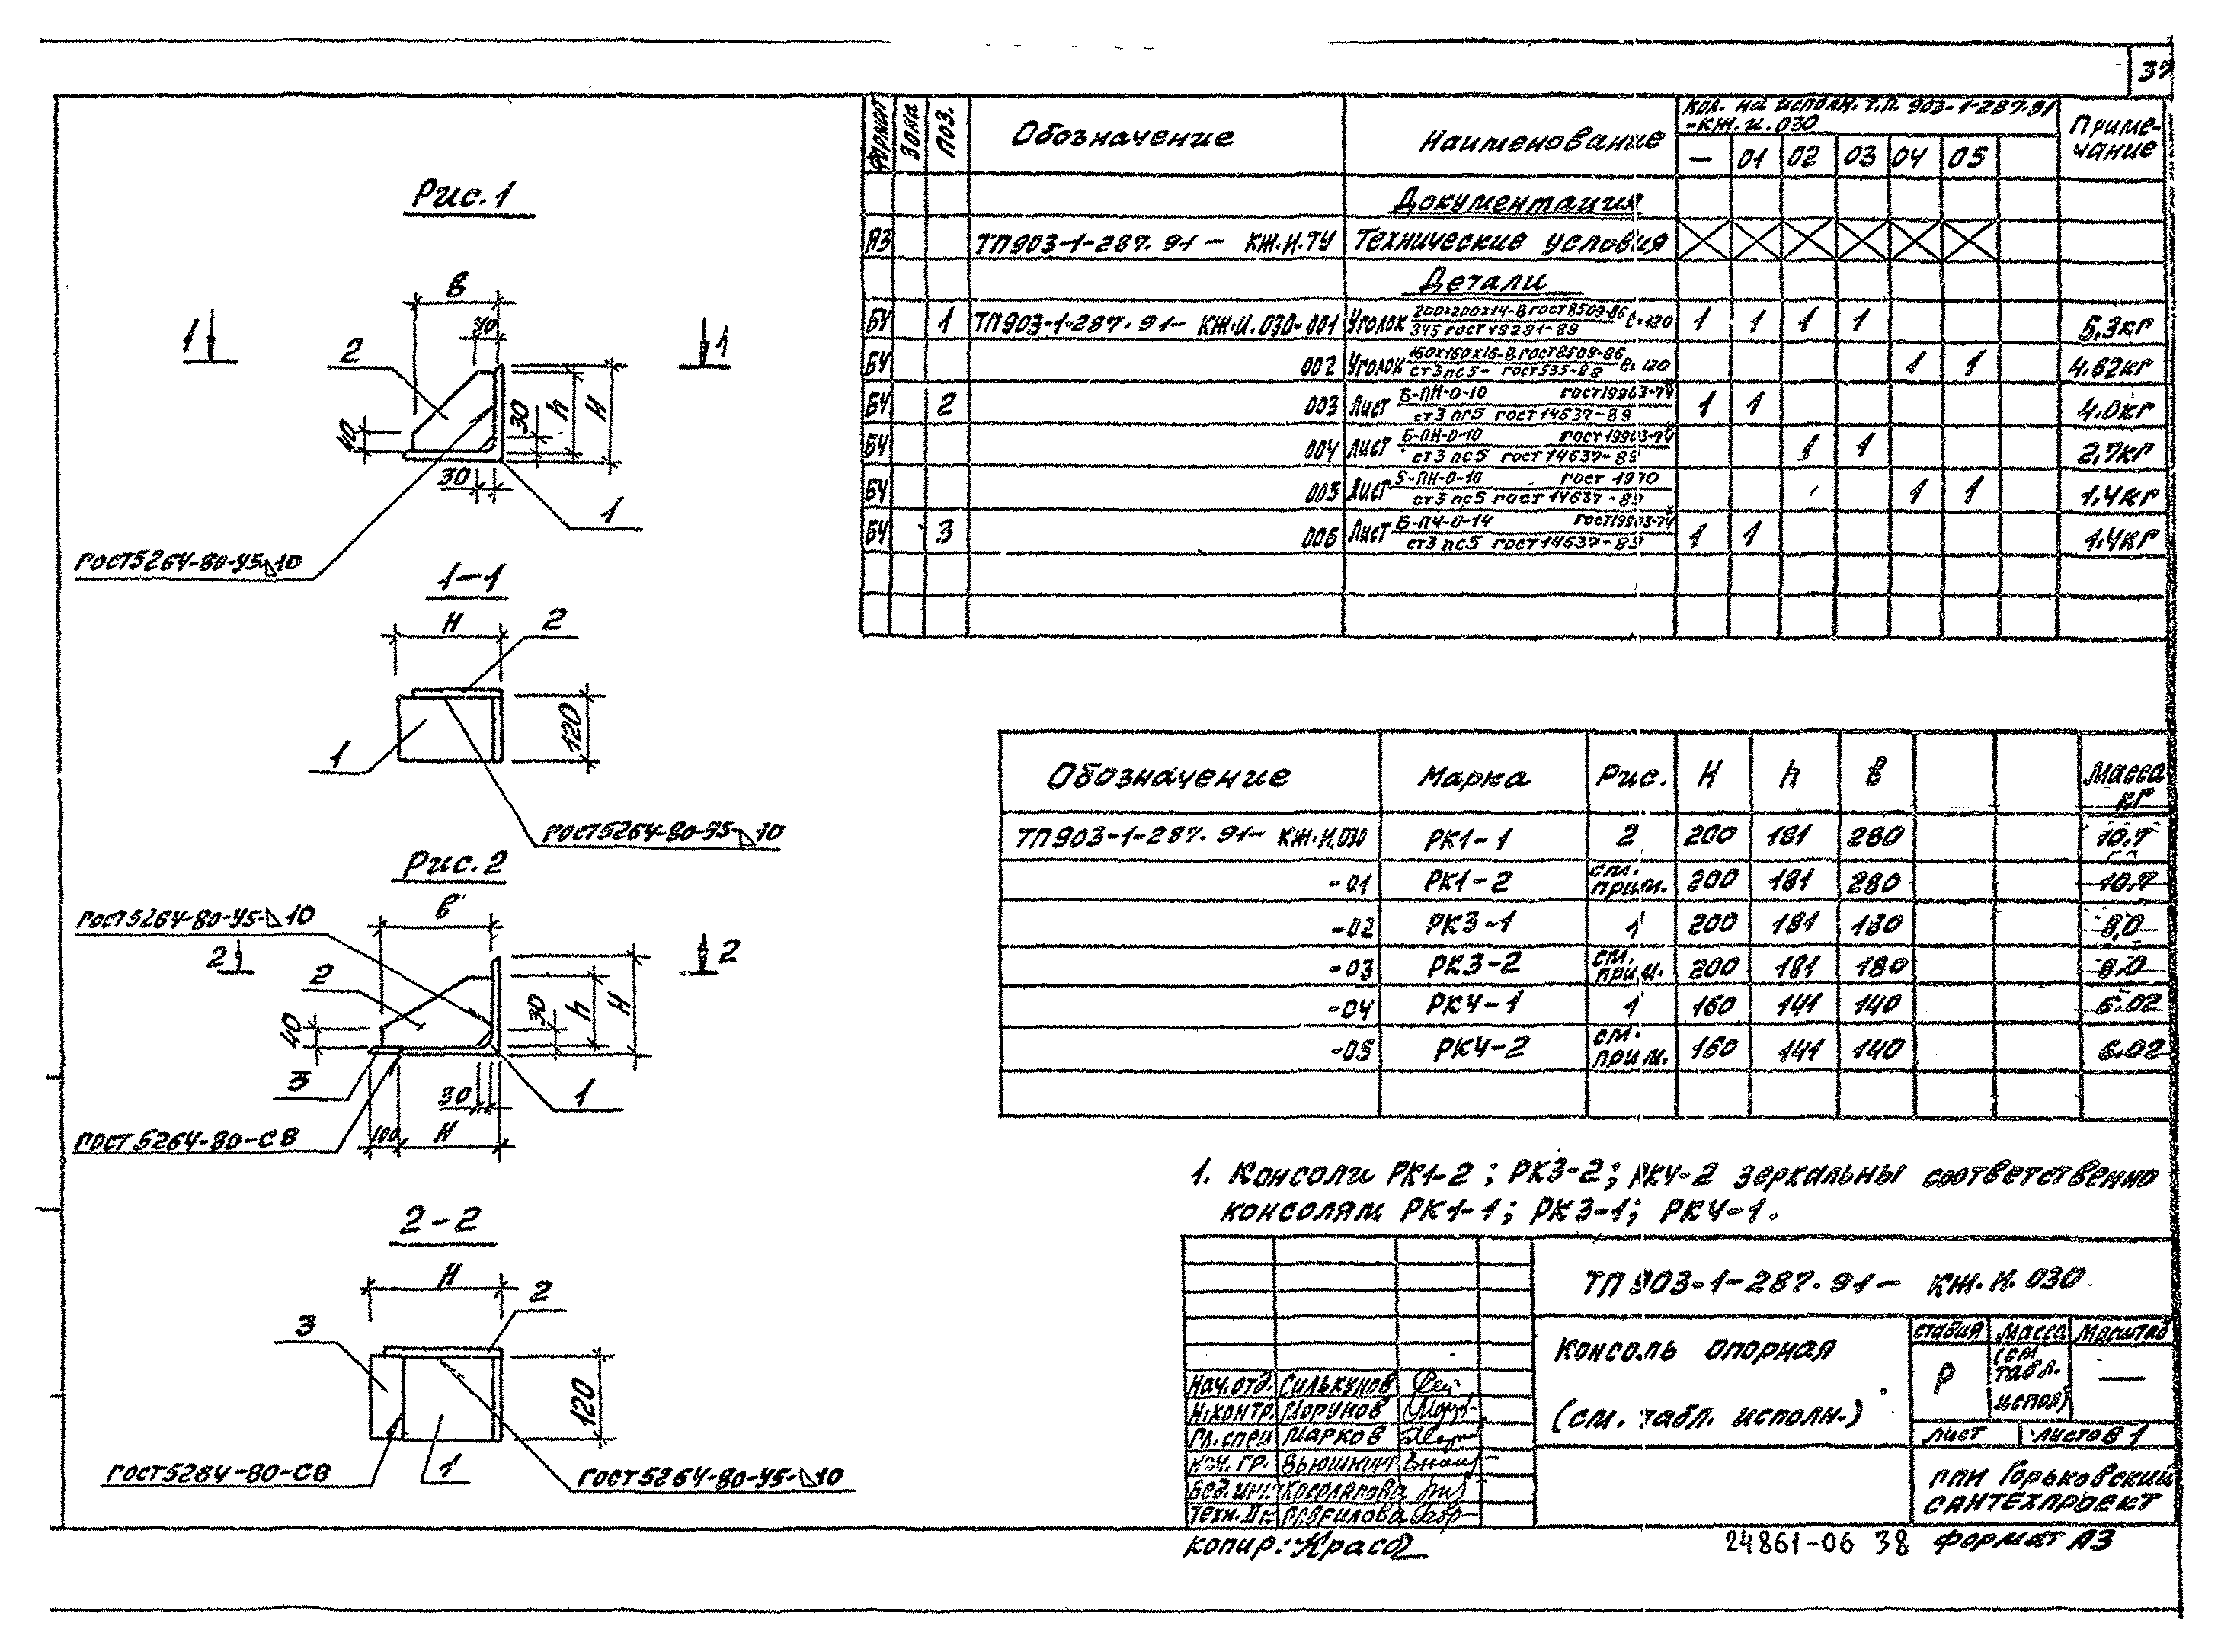 37
Рис. 1
В
40
1
1
2
40
30
h
Н
30
1
ГОСТ 5264-80-У5-◺10
1-1
Н
2
120
1
ГОСТ 5264-80-У5-◺10
Рис. 2
В
ГОСТ 5264-80-У5-◺10
2
2
2
40
30
h
Н
3
30
1
100
Н
ГОСТ 5264-80-С8
2-2
Н
2
3
120
ГОСТ 5264-80-С8
1
ГОСТ 5264-80-У5-◺10
Формат Зона Поз. Обозначение Наименование Кол. на исполн. Т.П. 903-1-287.91-КЖ.И.030 Примечание
— 01 02 03 04 05
Документация
А3 ТП903-1-287.91- КЖ.И.ТУ Технические условия
Детали
БЧ 1 ТП903-1-287.91- КЖ.И.030-001 Уголок 200х200х14-В ГОСТ 8509-86 / 345 ГОСТ 19281-89 ℓ=120 1 1 1 1 5,3кг
БЧ 002 Уголок 160х160х16-В ГОСТ 8509-86 / ст3пс5- ГОСТ 535-88 ℓ=120 1 1 4,62кг
БЧ 2 003 Лист Б-ПН-О-10 ГОСТ 19903-74 / ст3пс5 ГОСТ 14637-89 1 1 4.0кг
БЧ 004 Лист Б-ПН-О-10 ГОСТ 19903-74 / ст3пс5 ГОСТ 14637-89 1 1 2,7кг
БЧ 005 Лист Б-ПН-О-10 ГОСТ / ст3пс5 ГОСТ 14637-89 1 1 1.4кг
БЧ 3 006 Лист Б-ПЧ-О-14 ГОСТ 19903-74 / ст3пс5 ГОСТ 14637-89 1 1 1.4кг
Обозначение Марка Рис. Н h В Масса кг
ТП903-1-287.91- КЖ.И.030 РК1-1 2 200 181 280 10.7
-01 РК1-2 см. прим. 200 181 280 10.7
-02 РК3-1 1 200 181 180 8,0
-03 РК3-2 см. прим. 200 181 180 8.0
-04 РК4-1 1 160 141 140 6.02
-05 РК4-2 см. прим. 160 141 140 6.02
1. Консоли РК1-2; РК3-2; РК4-2 зеркальны соответственно
консолям РК1-1; РК3-1; РК4-1.
ТП 903-1-287.91- КЖ.И.030
Консоль опорная
(см. табл. исполн.)
Стадия Масса Масштаб
Р (см табл. испол) —
Лист Листов 1
ППИ Горьковский
САНТЕХПРОЕКТ
Нач.отд. Силькунов
Н.контр. Морунов
Гл.спец Марков
Нач. гр. Вьюшкин
Вед. инж. Косолапова
Техн. IIк Гаврилова
Копир.:
24861-06 38 Формат А3